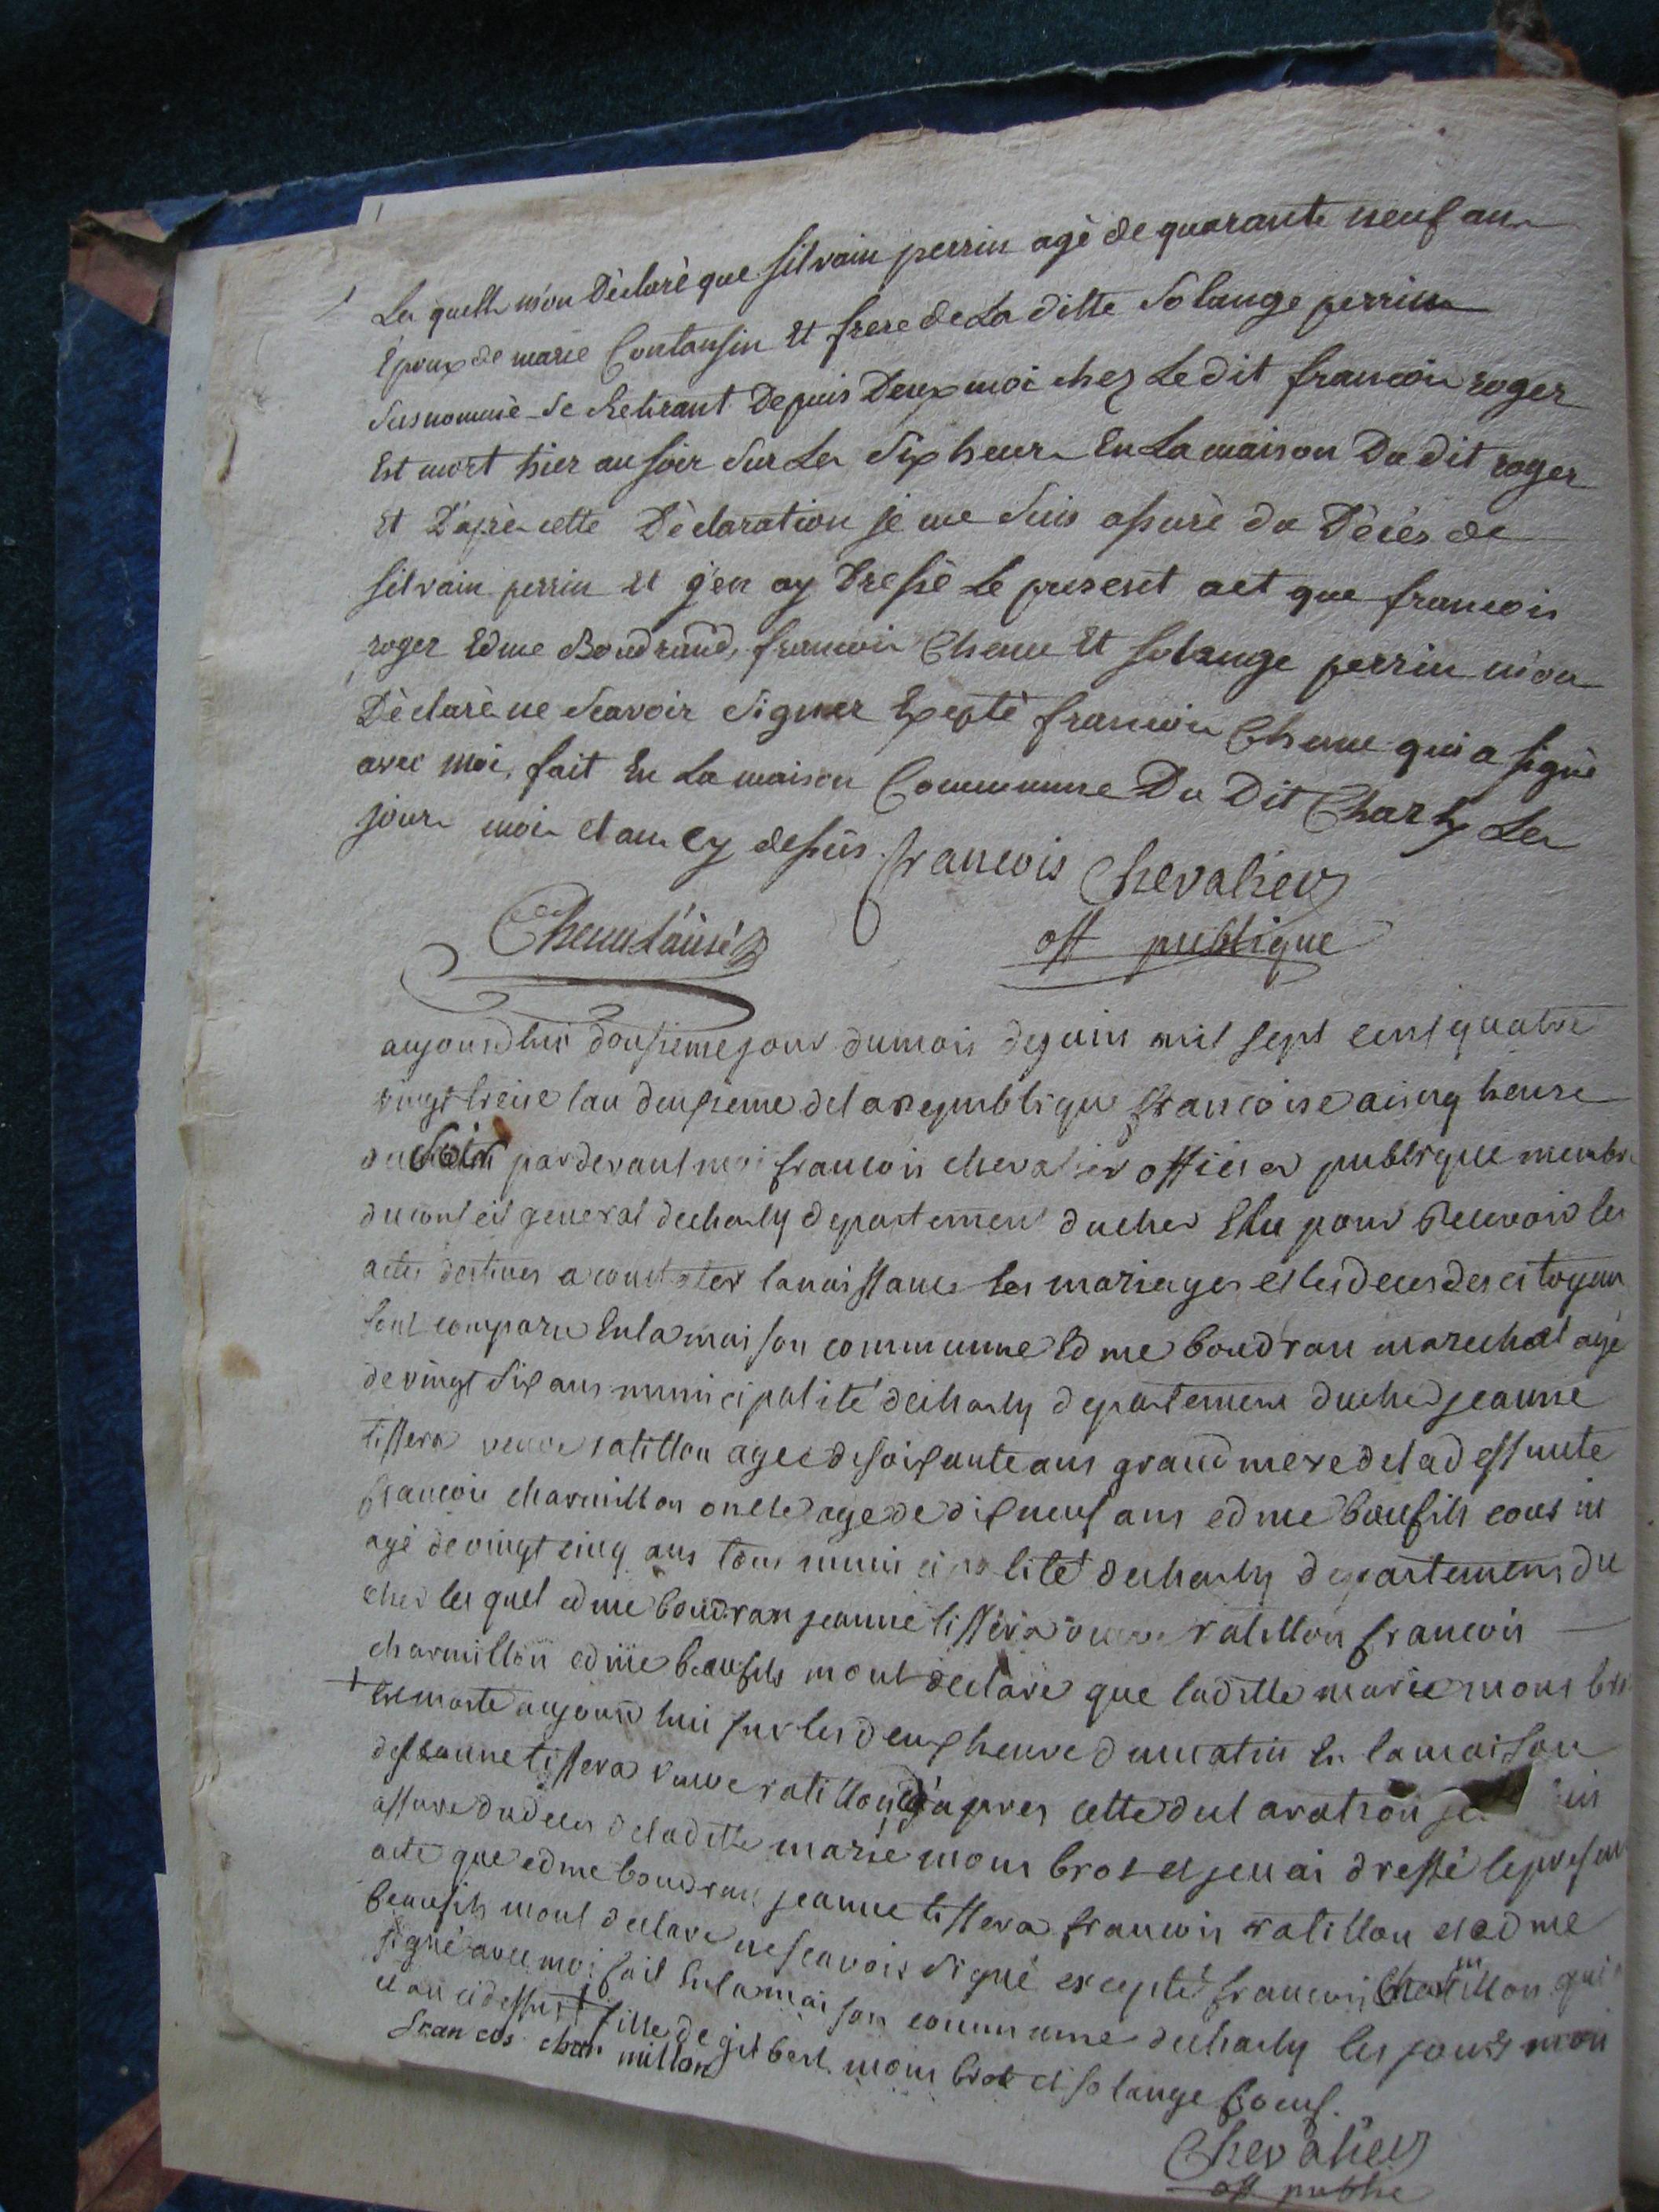 Les quells m'on Déclaré que silvain perrin agé de quarante neuf ans
Epoux de marie Contansin Et frere de La ditte Solange perrin
Susnommé Se Retirant Depuis Deux moi chez Le dit francois roger
Est mort hier au soir Sur Les Six heures En La maison Du dit roger
Et D'aprés cette Déclaration je me Suis assuré du Décés de
silvain perrin et j'en ay Dressé Le present act que francois
roger Edme Boudrand, francois Chenu Et solange perrin m'on
Déclaré ne Scavoir Signer Expepté francois Chenu qui a signé
avec moi, fait En La maison Commune Du Dit Charly Les
jours mois et an cy dessus. francois Chevalier
Chenu L'ainé
off publique
aujourdhui dousieme jour du mois de juin mil sept cent quatre
vingt treise lan deuxieme de la republique francoise a cinq heure
du Soir pardevant moi francois chevalier officier publique membre
du conseil general de charly departement du cher Elu pour Recevoir les
actes destines a constater la naissance les mariages et les deces des citoyens
sont comparu En la maison commune Edme boudran marechal agé
de vingt six ans municipalité de charly departement du cher jeanne
tissera veuve ratillon agee de soixante ans grand mere de la deffunte
francois charmillon oncle age de dix neuf ans edme beaufils cousin
agé de vingt cinq ans tous municipalité de charly departement du
cher les quel edme boudran jeanne tissera veuve ratillon francois
charmillon edme beaufils mont declaré que laditte marie mons bros
+ Est morte aujourd hui sur les deux heure du matin En la maison
de jeanne tissera veuve ratillon d'apres cette declaration je suis
assure du deces de laditte marie mons bros et jen ai dressé le present
acte que edme boudran jeanne tissera francois ratillon et edme
beaufils mont declare ne scavoir signé excepté francois charmillon qui a
signé avec moi fait En la maison commune de charly les jours mois
et an ci dessus + fille de gilbert mons bros et solange boeuf.
francois charmillon
Chevalier
off public